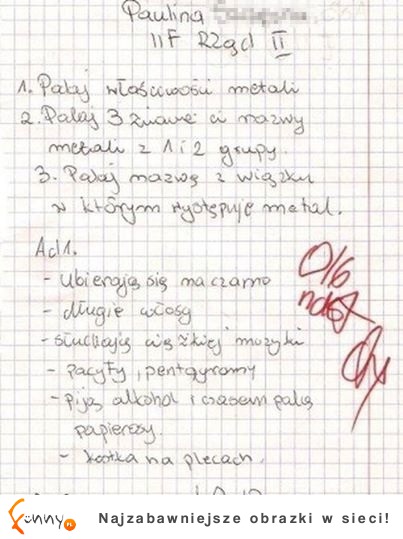 Paulina
IIF Rząd II
1. Podaj właściwości metali
2. Podaj 3 znane ci nazwy
metali z 1 i 2 grupy.
3. Podaj nazwę z wiązku
w którym występuje metal.
Ad1.
- Ubierają się na czarno
- długie włosy
- słuchają ciężkiej muzyki
- pacyfy, pentagramy
- piją alkohol i czasem palą
papierosy.
- kostka na plecach.
0/6
ndst
Funny
Najzabawniejsze obrazki w sieci!